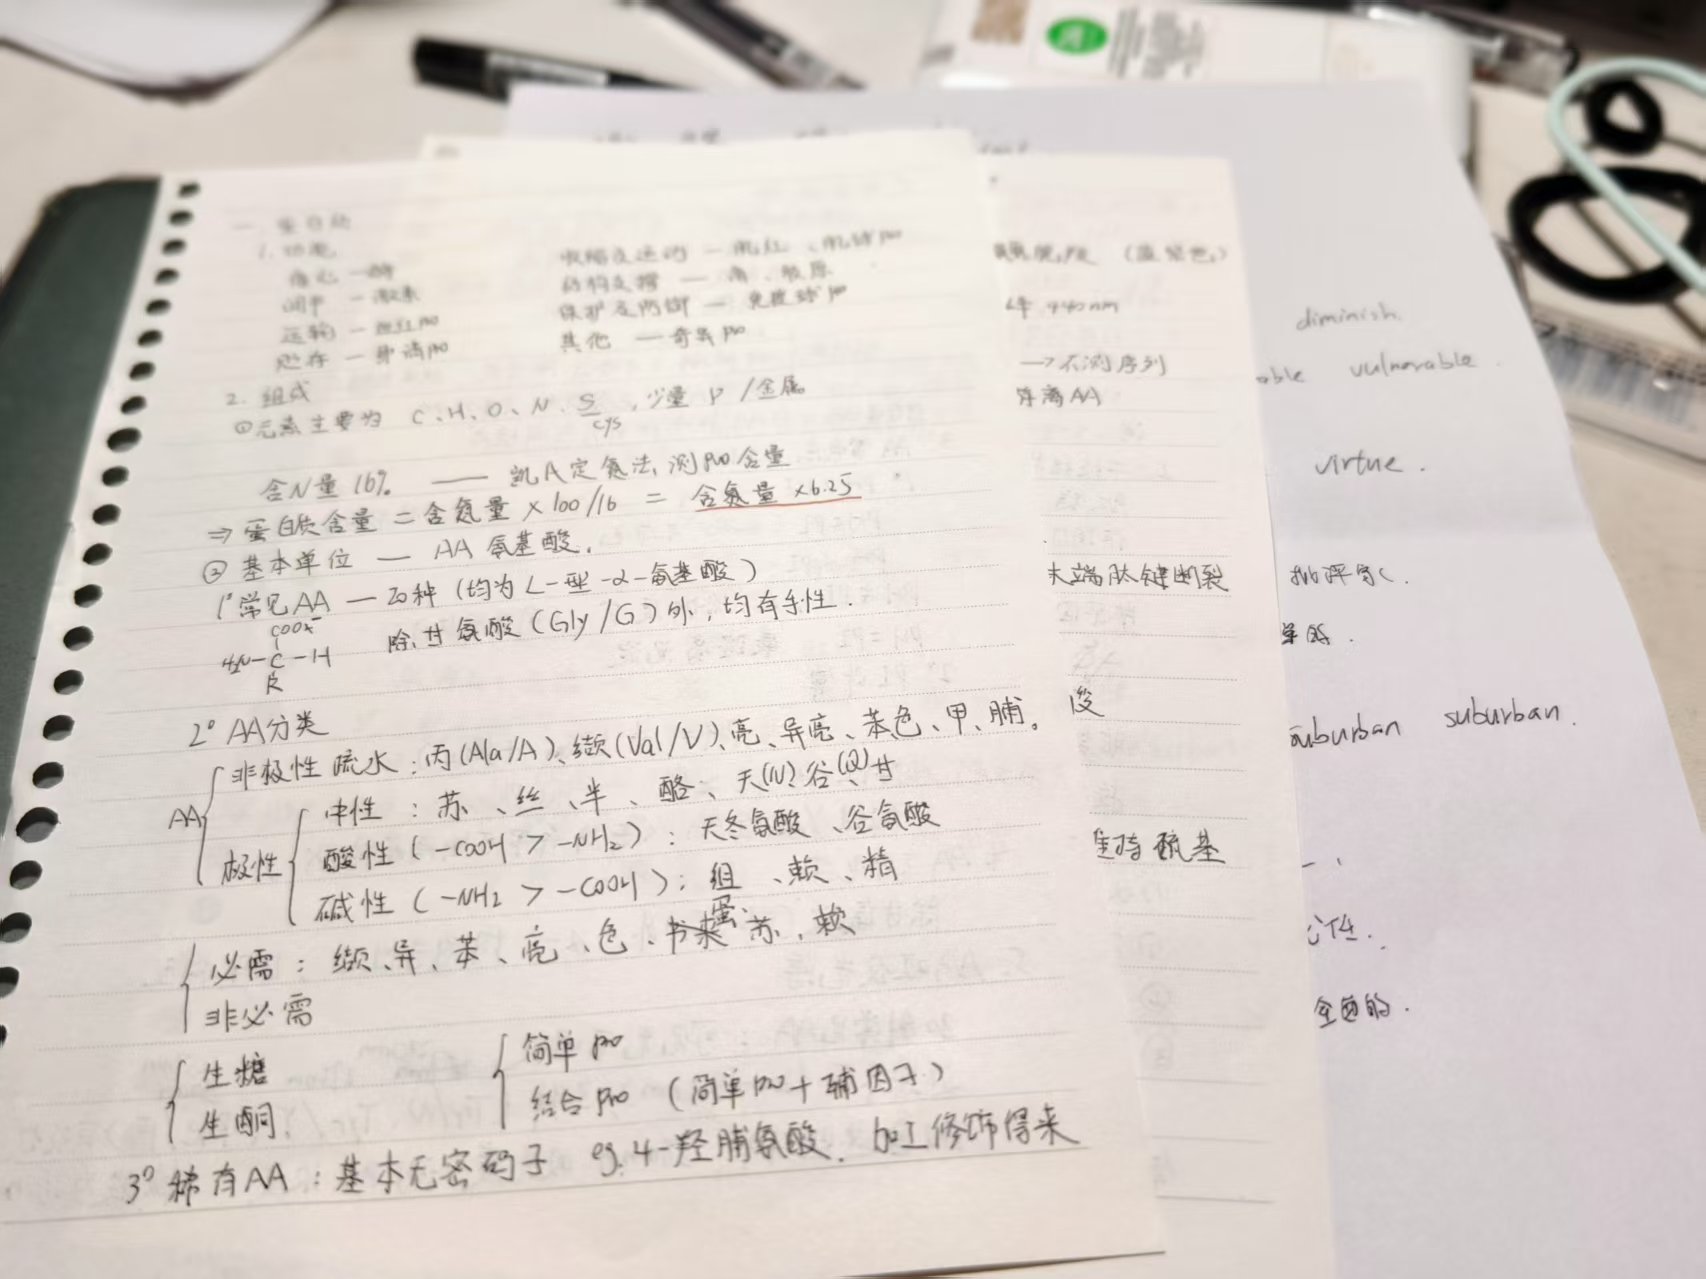 一、蛋白质
1.功能
催化 — 酶
调节 — 激素
运输 — 血红pro
贮存 —
结构支撑 — 胶原
保护及防御 — 免疫球pro
其他 — 奇异pro
2. 组成
①元素主要为 C、H、O、N、S,少量 P /金属
cys
含N量16% —— 凯氏定氮法,测pro含量
⇒ 蛋白质含量 = 含氮量 × 100/16 = 含氮量 ×6.25
② 基本单位 — AA 氨基酸.
1° 常见AA — 20种 (均为 L-型-α-氨基酸)
除甘氨酸(Gly/G)外,均有手性.
COO⁻
H₃N-C-H
R
2° AA分类
AA
非极性 疏水:丙(Ala/A)、缬(Val/V)、亮、异亮、苯、色、甲、脯。
极性
中性 : 苏、丝、半、酪、天(N)谷(Q)甘
酸性 (-COOH > -NH₂) : 天冬氨酸、谷氨酸
碱性 (-NH₂ > -COOH) : 组、赖、精
必需 : 缬、异、苯、亮、色、蛋、苏、赖
非必需
生糖
生酮
简单 pro
结合 pro (简单pro + 辅因子)
3° 稀有AA : 基本无密码子 eg. 4-羟脯氨酸. 加工修饰得来
440nm
→不测序列
AA
末端肽键断裂
疏基
diminish
vulnerable
virtue.
suburban suburban.
全面的.